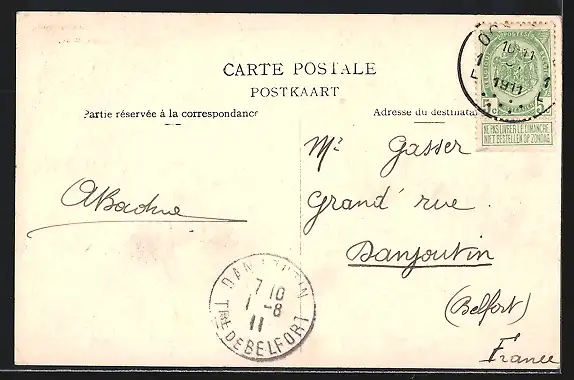 CARTE POSTALE
POSTKAART
Partie réservée à la correspondance
Adresse du destinata
1911
5
NE PAS LIVRER LE DIMANCHE
NIET BESTELLEN OP ZONDAG
Mr Gasser
Grand' rue
Danjoutin
(Belfort)
France
DANJOUTIN
7 10
1-8
11
TRE DE BELFORT